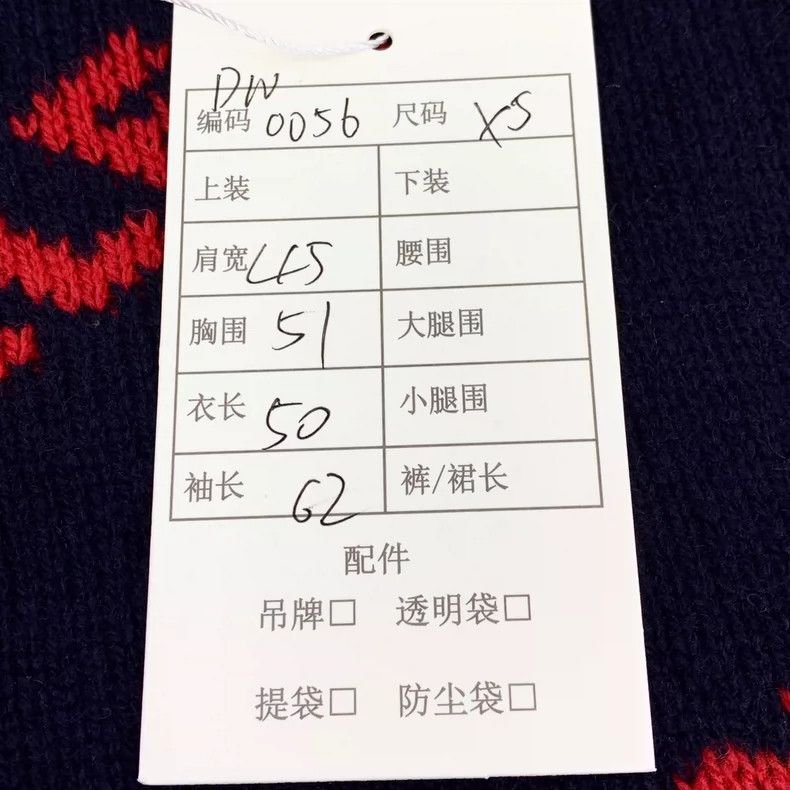 DW
编码 0056 尺码 XS
上装 下装
肩宽 45 腰围
胸围 51 大腿围
衣长 50 小腿围
袖长 62 裤/裙长
配件
吊牌□ 透明袋□
提袋□ 防尘袋□